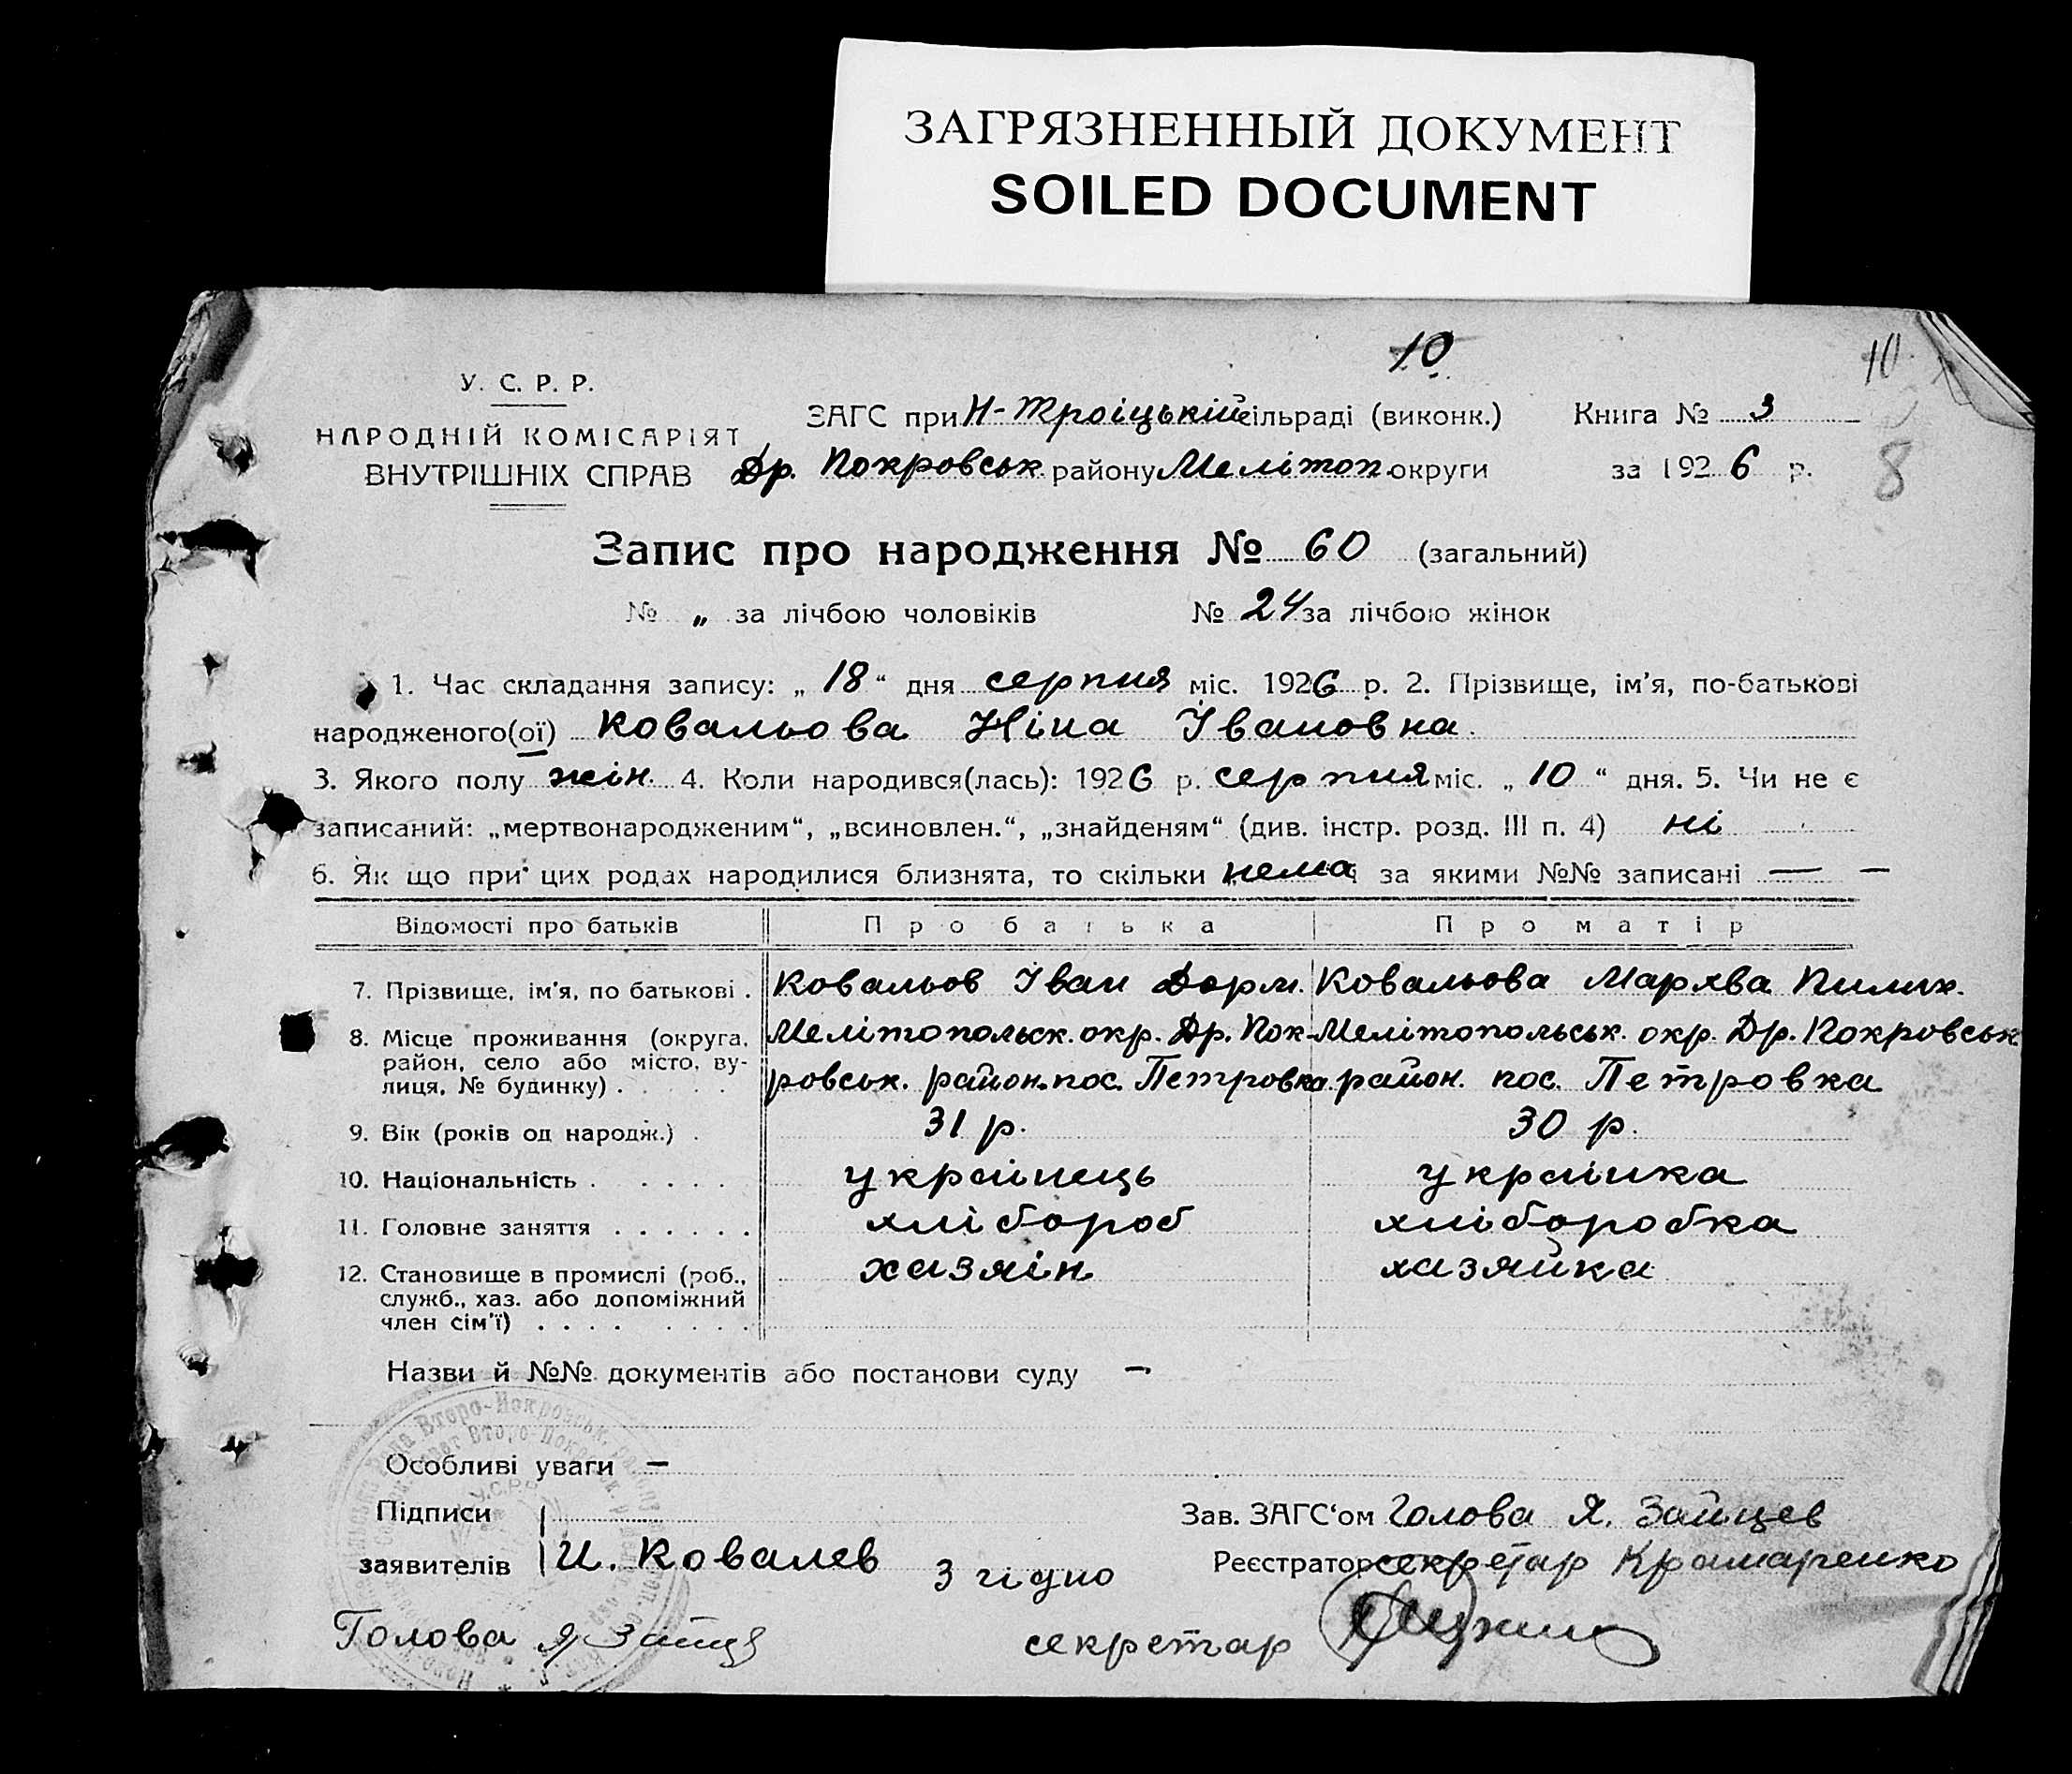 ЗАГРЯЗНЕННЫЙ ДОКУМЕНТ
SOILED DOCUMENT
10
10
У. С. Р. Р.
НАРОДНІЙ КОМІСАРІЯТ
ВНУТРІШНІХ СПРАВ
ЗАГС при Н-Троіцькій сільраді (виконк.)
Книга № 3
Др. Покровськ. району Мелітоп. округи
за 1926 р.
8
Запис про народження № 60 (загальний)
№ „ за лічбою чоловіків № 24 за лічбою жінок
1. Час складання запису: „ 18 “ дня серпня міс. 1926 р. 2. Прізвище, ім'я, по-батькові
народженого(ої) Ковальова Ніна Івановна.
3. Якого полу жін. 4. Коли народився(лась): 1926 р. серпня міс. „ 10 “ дня. 5. Чи не є
записаний: „мертвонародженим“, „всиновлен.“, „знайденям“ (див. інстр. розд. III п. 4) ні
6. Як що при цих родах народилися близнята, то скільки нема за якими №№ записані — —
Відомості про батьків Про батька Про матір
7. Прізвище, ім'я, по батькові . Ковальов Іван Дорм. Ковальова Мархва Пилип.
8. Місце проживання (округа, Мелітопольск. окр. Др. Пок- Мелітопольськ. окр. Др. Покровськ
район, село або місто, ву-
лиця, № будинку) . . . . ровськ. район. пос. Петровка район. пос. Петровка
9. Вік (років од народж.) . 31 р. 30 р.
10. Національність . . . . . українець українка
11. Головне заняття . . . . . . хлібороб хліборобка
12. Становище в промислі (роб., хазяін хазяйка
служб., хаз. або допоміжний
член сім'ї) . . . . . . . .
Назви й №№ документів або постанови суду —
Особливі уваги —
Підписи
заявителів И. Ковалев
Зав. ЗАГС'ом Голова Я. Зайцев
Реєстратор секретар Крамаренко
З гідно
Голова Я Зайцев
секретар